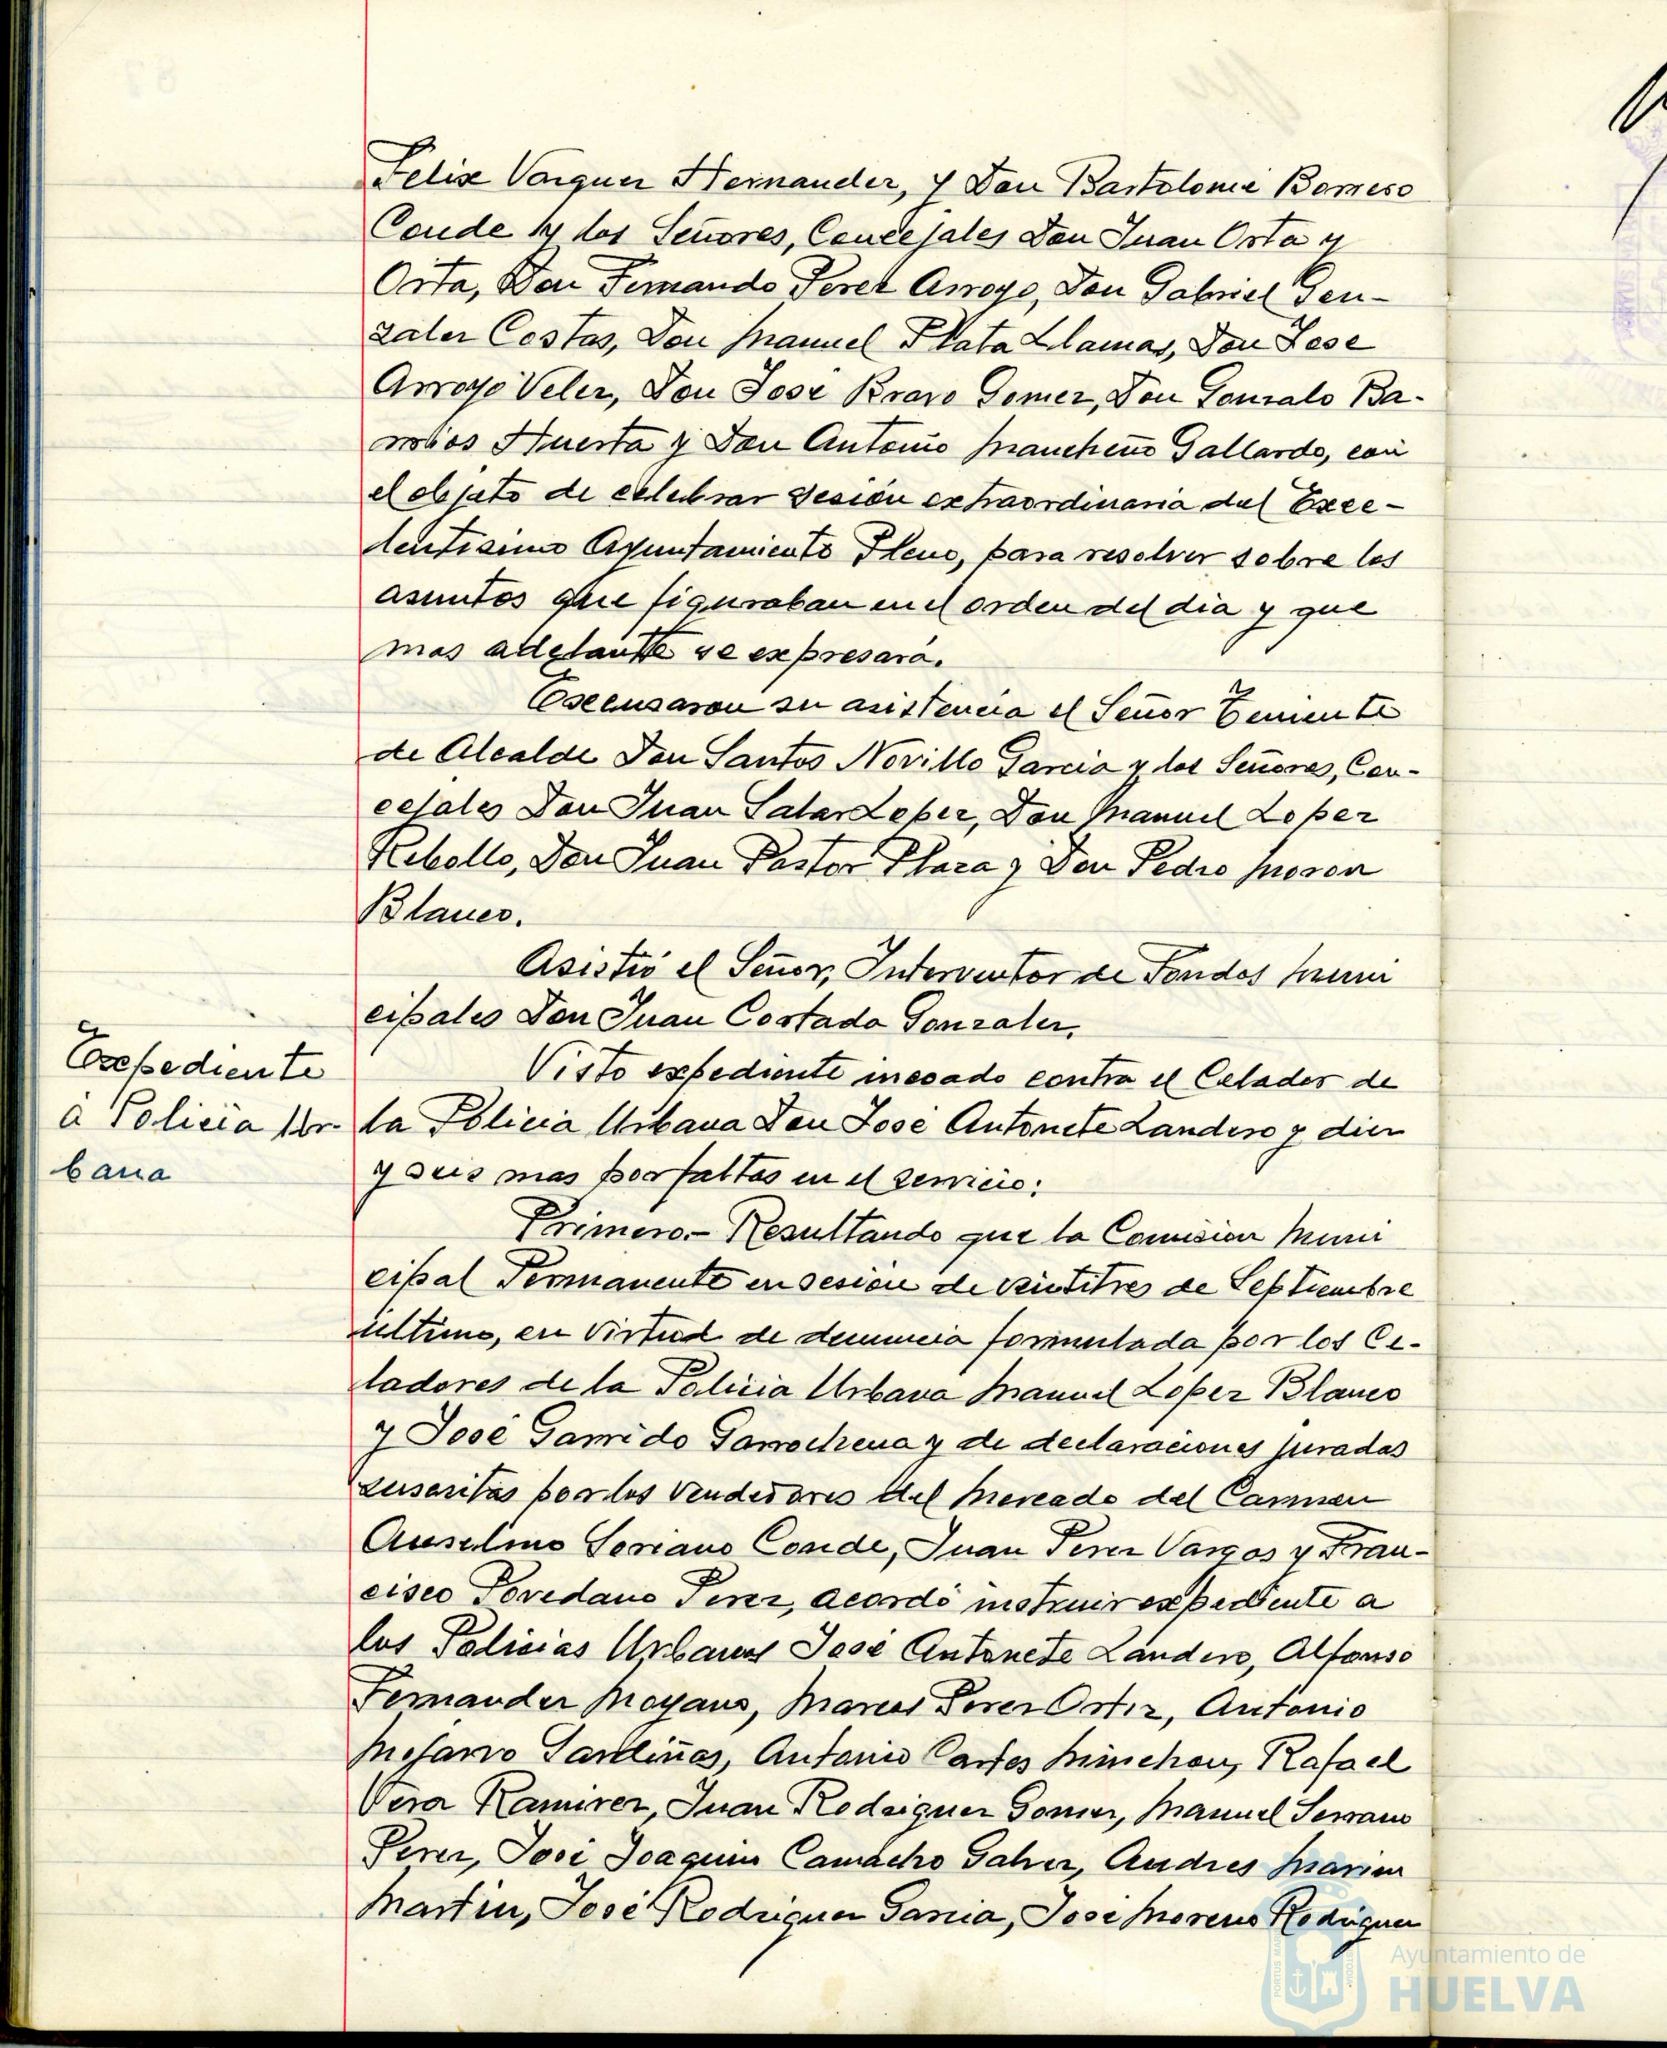 Felix Vazquez Hernandez, y Don Bartolomé Borrero
Conde y los Señores, Concejales Don Juan Orta y
Orta, Don Fernando Perez Arroyo, Don Gabriel Gon-
zalez Costas, Don Manuel Plata Llamas, Don Jose
Arroyo Velez, Don José Bravo Gomez, Don Gonzalo Ba-
rrios Huerta y Don Antonio Mancheño Gallardo, con
el objeto de celebrar sesión extraordinaria del Exce-
lentisimo Ayuntamiento Pleno, para resolver sobre los
asuntos que figuraban en el orden del dia y que
mas adelante se expresará.
Excusaron su asistencia el Señor Teniente
de Alcalde Don Santos Novillo Garcia y los Señores, Con-
cejales Don Juan Salas Lopez, Don Manuel Lopez
Rebollo, Don Juan Pastor Plaza y Don Pedro Moron
Blanco.
Asistió el Señor, Interventor de Fondos Muni
cipales Don Juan Cortado Gonzalez.
Expediente
á Policía Ur-
bana
Visto expediente incoado contra el Celador de
la Policia Urbana Don José Antonete Landero y diez
y seis mas por faltas en el servicio:
Primero.- Resultando que la Comision Muni
cipal Permanente en sesion de veintitres de Septiembre
último, en virtud de denuncia formulada por los Ce-
ladores de la Policia Urbana Manuel Lopez Blanco
y José Garrido Garrochena y de declaraciones juradas
suscritas por los vendedores del Mercado del Carmen
Anselmo Soriano Conde, Juan Perez Vargas y Fran-
cisco Povedano Perez, acordó instruir expediente a
los Policias Urbanos José Antonete Landero, Alfonso
Fernandez Moyano, Marcos Perez Ortiz, Antonio
Mojarro Sardiñas, Antonio Cartes Minchon, Rafael
Vera Ramirez, Juan Rodriguez Gomez, Manuel Serrano
Perez, José Joaquin Camacho Galvez, Andres Marin
Martin, José Rodriguez Garcia, José Moreno Rodriguez
Ayuntamiento de
HUELVA